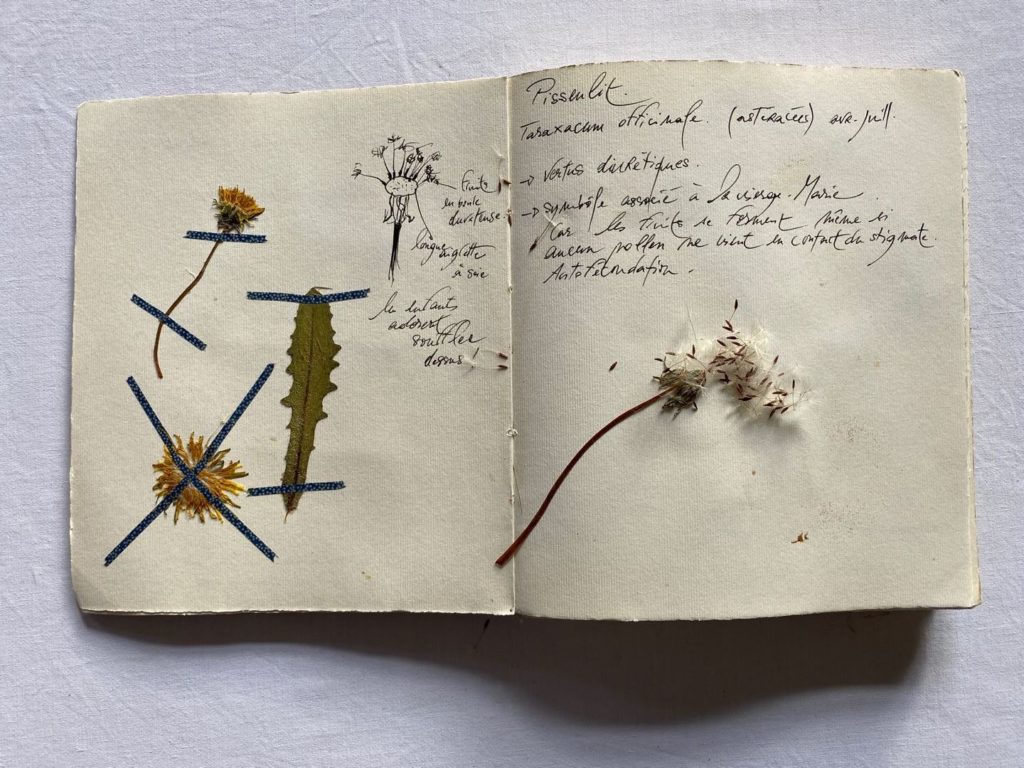 fruits
en boule
duveteuse.
longue
aigrette
à soie
les enfants
adorent
souffler
dessus!
Pissenlit.
Taraxacum officinale. (astéracées) avr-juill.
→ Vertus diurétiques.
→ Symbôle associé à la vierge-Marie
Car les fruits se forment même si
aucun pollen ne vient en contact du stigmate.
Autofécondation.